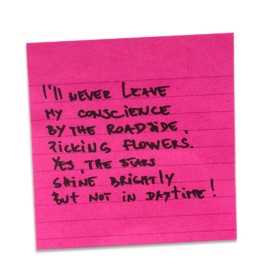 I'll never leave
my conscience
by the roadside,
picking flowers.
Yes, the stars
shine brightly
but not in daytime!